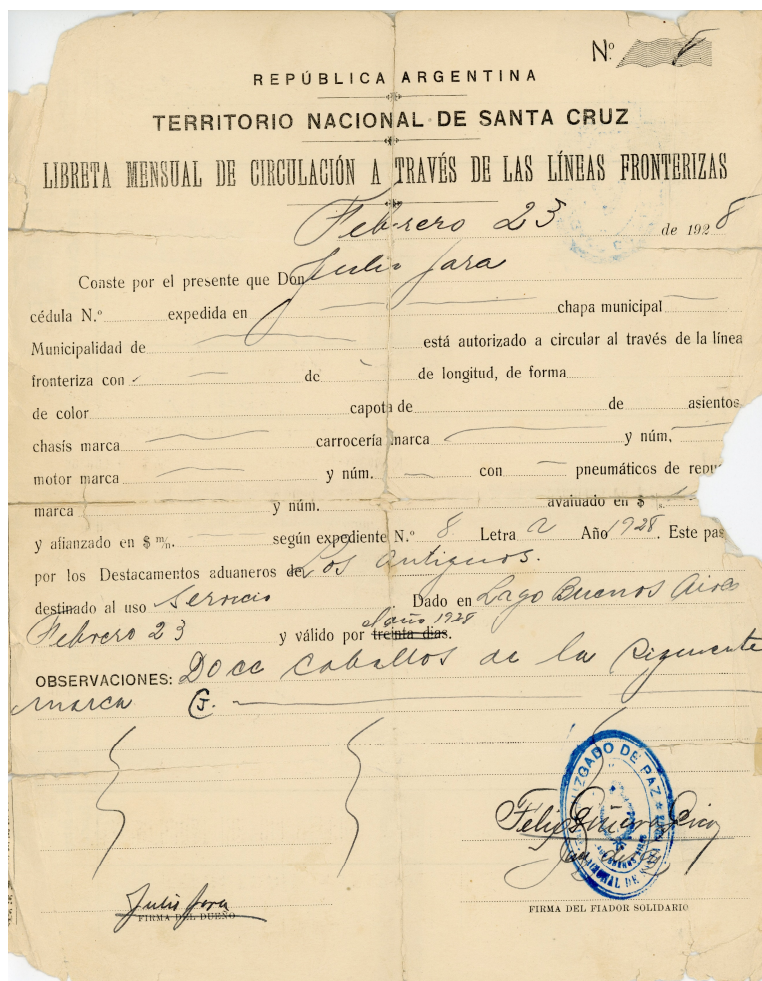 Nº
REPÚBLICA ARGENTINA
TERRITORIO NACIONAL DE SANTA CRUZ
LIBRETA MENSUAL DE CIRCULACIÓN A TRAVÉS DE LAS LÍNEAS FRONTERIZAS
Febrero 23 de 1928
Conste por el presente que Don Julio Jara
cédula N.º expedida en chapa municipal
Municipalidad de está autorizado a circular al través de la línea
fronteriza con de de longitud, de forma
de color capota de de asientos
chasís marca carrocería marca y núm,
motor marca y núm. con pneumáticos de repu
marca y núm. avaluado en $
y afianzado en $ m/n. según expediente N.º 8 Letra Año 1928. Este pas
por los Destacamentos aduaneros de Los Antiguos.
destinado al uso Servicio Dado en Lago Buenos Aires
Febrero 23 y válido por el año 1928 treinta dias.
OBSERVACIONES: Doce caballos de la siguiente
marca J.
JUZGADO DE PAZ
Julio Jara
FIRMA DEL DUEÑO
FIRMA DEL FIADOR SOLIDARIO